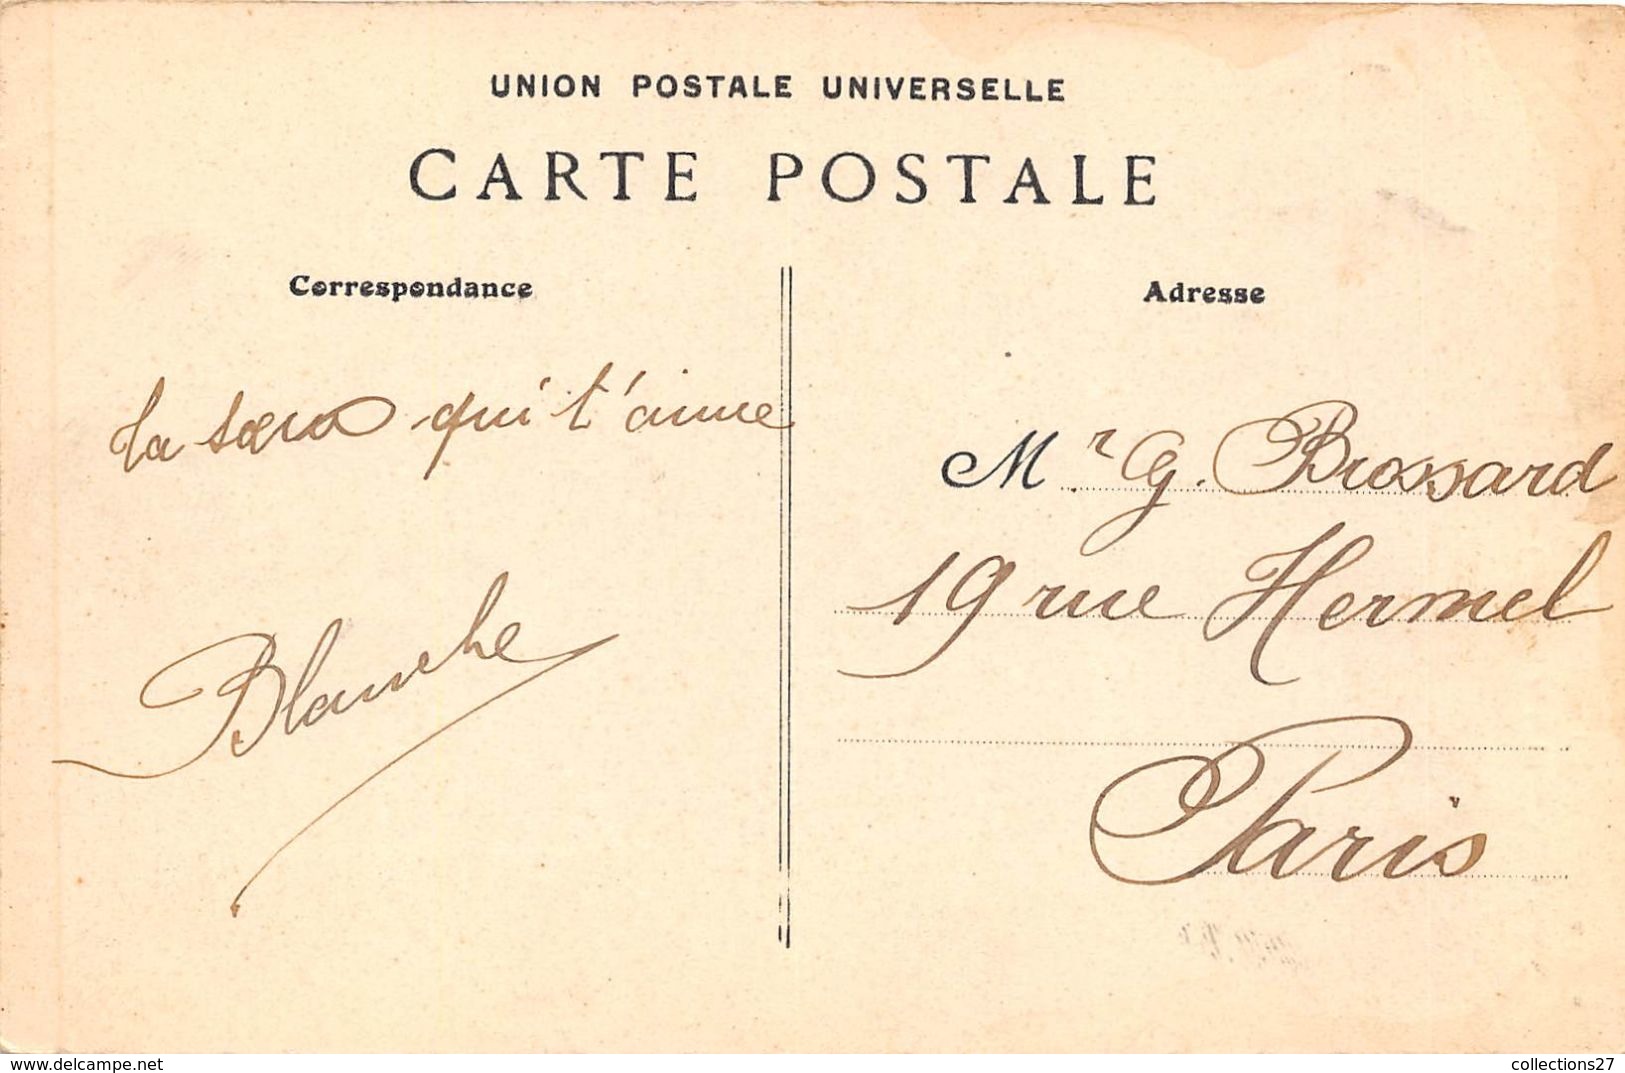 UNION POSTALE UNIVERSELLE
CARTE POSTALE
Correspondance
Adresse
ta sœur qui t'aime
Blanche
M.r G. Brossard
19 rue Hermel
Paris
https://www.delcampe.net
collections27